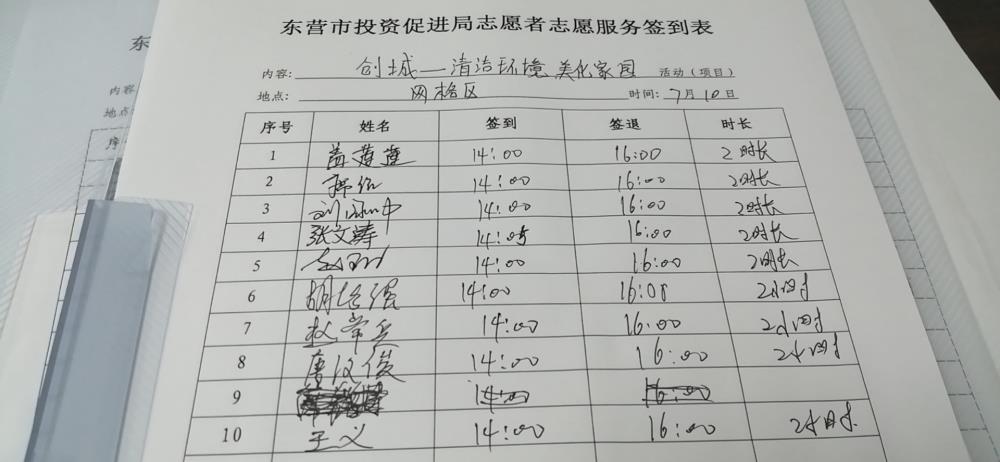 东营市投资促进局志愿者志愿服务签到表
内容: 创城—清治环境 美化家园 活动（项目）
地点: 网格区 时间: 7月10日
序号 姓名 签到 签退 时长
1 14:00 16:00 2时长
2 14:00 16:00 2时长
3 14:00 16:00 2时长
4 张文涛 14:05 16:00 2时长
5 14:00 16:00 2时长
6 14:00 16:00 2小时
7 赵常兵 14:00 16:00 2小时
8 唐汉俊 14:00 16:00 2小时
9 14:00 16:00
10 王义 14:00 16:00 2小时
东
内容
地点
序